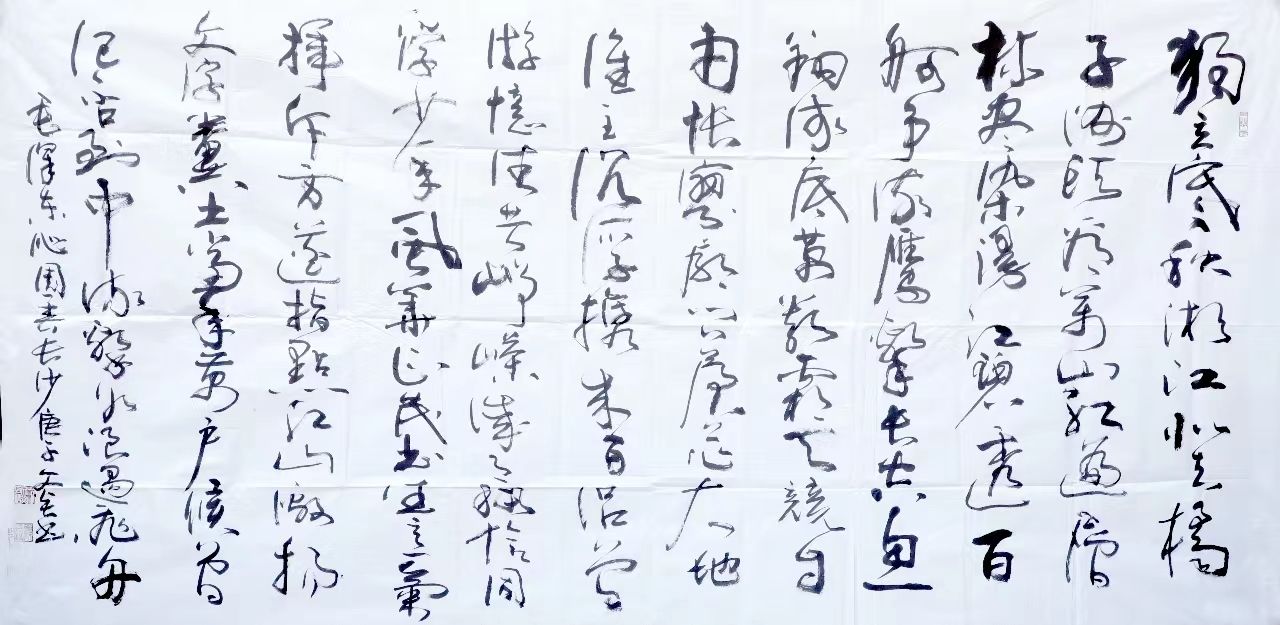 獨立寒秋湘江北去橘
子洲頭看萬山紅遍層
林盡染漫江碧透百
舸爭流鷹擊長空魚
翔淺底萬類霜天競自
由悵寥廓問蒼茫大地
誰主沉浮攜來百侶曾
游憶往昔崢嶸歲月稠恰同
學少年風華正茂書生意氣
揮斥方遒指點江山激揚
文字糞土當年萬户侯曾
記否到中流擊水浪遏飛舟
毛澤東沁園春長沙庚子